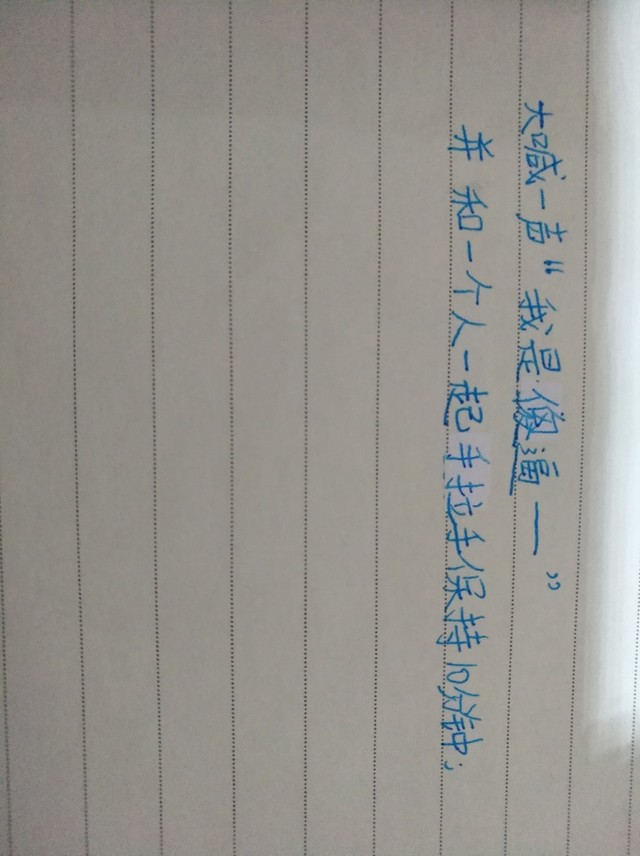 大喊一声“我是傻逼——”
并和一个人一起手拉手保持10分钟；